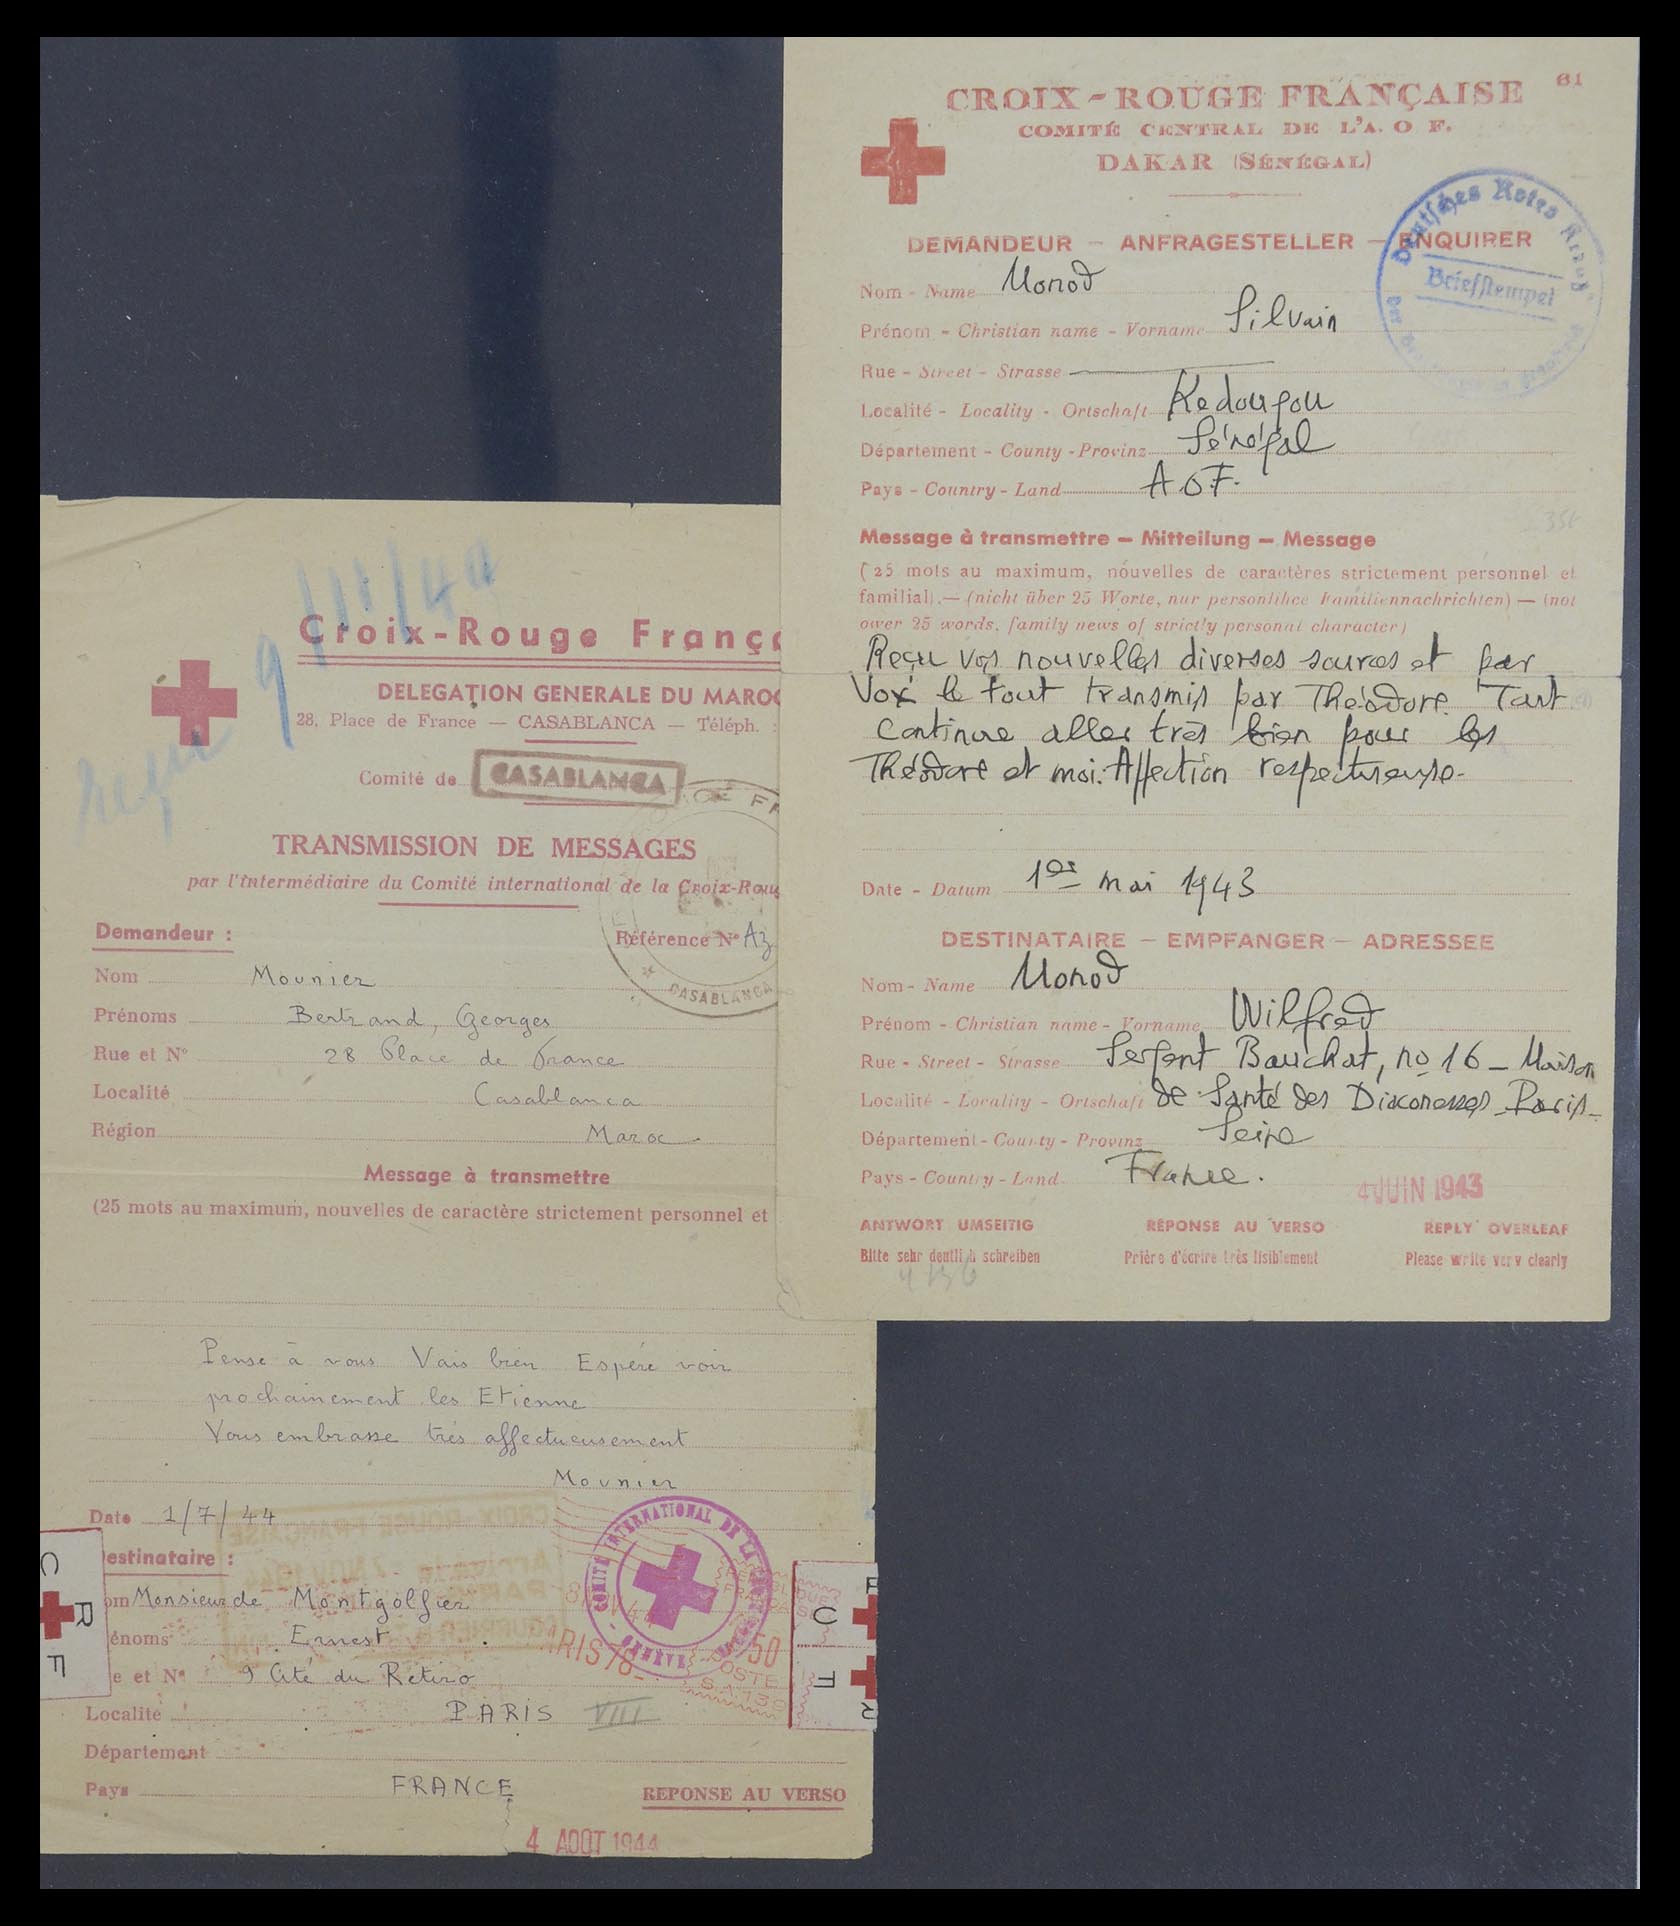 CROIX-ROUGE FRANÇAISE
61
COMITÉ CENTRAL DE L'A. O F.
DAKAR (SÉNÉGAL)
Deutsches Rotes Kreuz
Briefstempel
DEMANDEUR – ANFRAGESTELLER – ENQUIRER
Nom - Name Monod
Prénom - Christian name - Vorname Silvain
Rue - Street - Strasse
Localité - Locality - Ortschaft Kedougou
Département - County - Provinz Sénégal
Pays - Country - Land A O F.
Message à transmettre – Mitteilung – Message
(25 mots au maximum, nouvelles de caractères strictement personnel et
familial).— (nicht über 25 Worte, nur personlihce Familiennachrichten) — (not
ower 25 words, family news of strictly personal character)
Reçu vos nouvelles diverses sources et par
Vox le tout transmis par Théodore. Tout
continue aller très bien pour les
Théodore et moi. Affection respectueuse.
Date - Datum 1er mai 1943
DESTINATAIRE – EMPFANGER – ADRESSEE
Nom - Name Monod
Prénom - Christian name - Vorname Wilfred
Rue - Street - Strasse Sergent Bauchat, no 16 – Maison
Localité - Locality - Ortschaft de Santé des Diaconesses Paris
Département - County - Provinz Seine
Pays - Country - Land France.
4 JUIN 1943
ANTWORT UMSEITIG RÉPONSE AU VERSO REPLY OVERLEAF
Bitte sehr deutlich schreiben Prière d'écrire très lisiblement Please write very clearly
reçu 9/11/44
Croix-Rouge França
DELEGATION GENERALE DU MAROC
28, Place de France — CASABLANCA — Téléph. :
Comité de CASABLANCA
TRANSMISSION DE MESSAGES
par l'intermédiaire du Comité international de la Croix-Roug
Demandeur : Référence N° Az
CASABLANCA
Nom Mounier
Prénoms Bertrand, Georges
Rue et N° 28 Place de France
Localité Casablanca
Région Maroc.
Message à transmettre
(25 mots au maximum, nouvelles de caractère strictement personnel et
Pense à vous Vais bien Espère voir
prochainement les Etienne
Vous embrasse très affectueusement
Mounier
Date 1/7/44
COMITÉ INTERNATIONAL DE LA
GENÈVE
estinataire :
om Monsieur de Montgolfier
énoms Ernest
e et N° 9 Cité du Retiro
Localité PARIS VIII
Département
Pays FRANCE
REPONSE AU VERSO
4 AOUT 1944
C R F